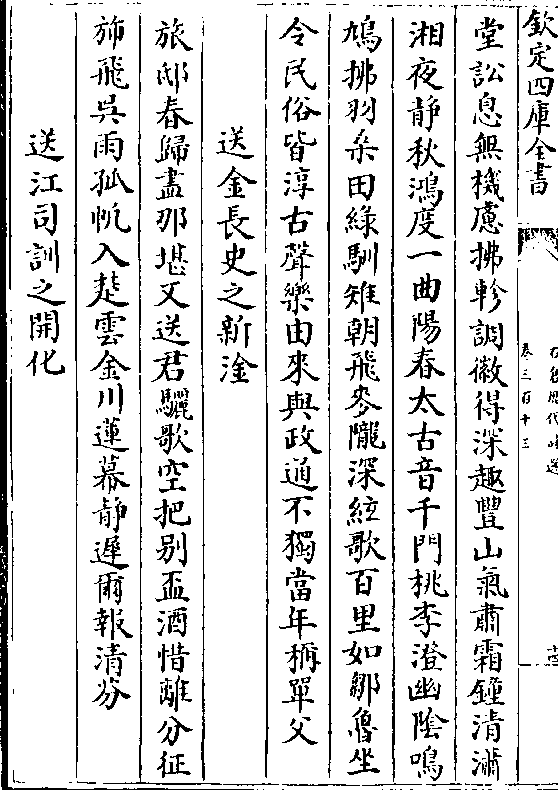 欽定四庫全書
卷三百十三
堂訟息無機慮拂軫調徽得深趣豐山氣肅霜鐘清瀟
湘夜靜秋鴻度一曲陽春太古音千門桃李澄幽陰鳴
鳩拂羽桑田綠馴雉朝飛麥隴深絃歌百里如鄒魯坐
令民俗皆淳古聲樂由來與政通不獨當年稱單父
送金長史之新淦
旅邸春歸盡那堪又送君驪歌空把別盃酒惜離分征
斾飛吳雨孤帆入楚雲金川蓮幕靜遲爾報清芬
送江司訓之開化